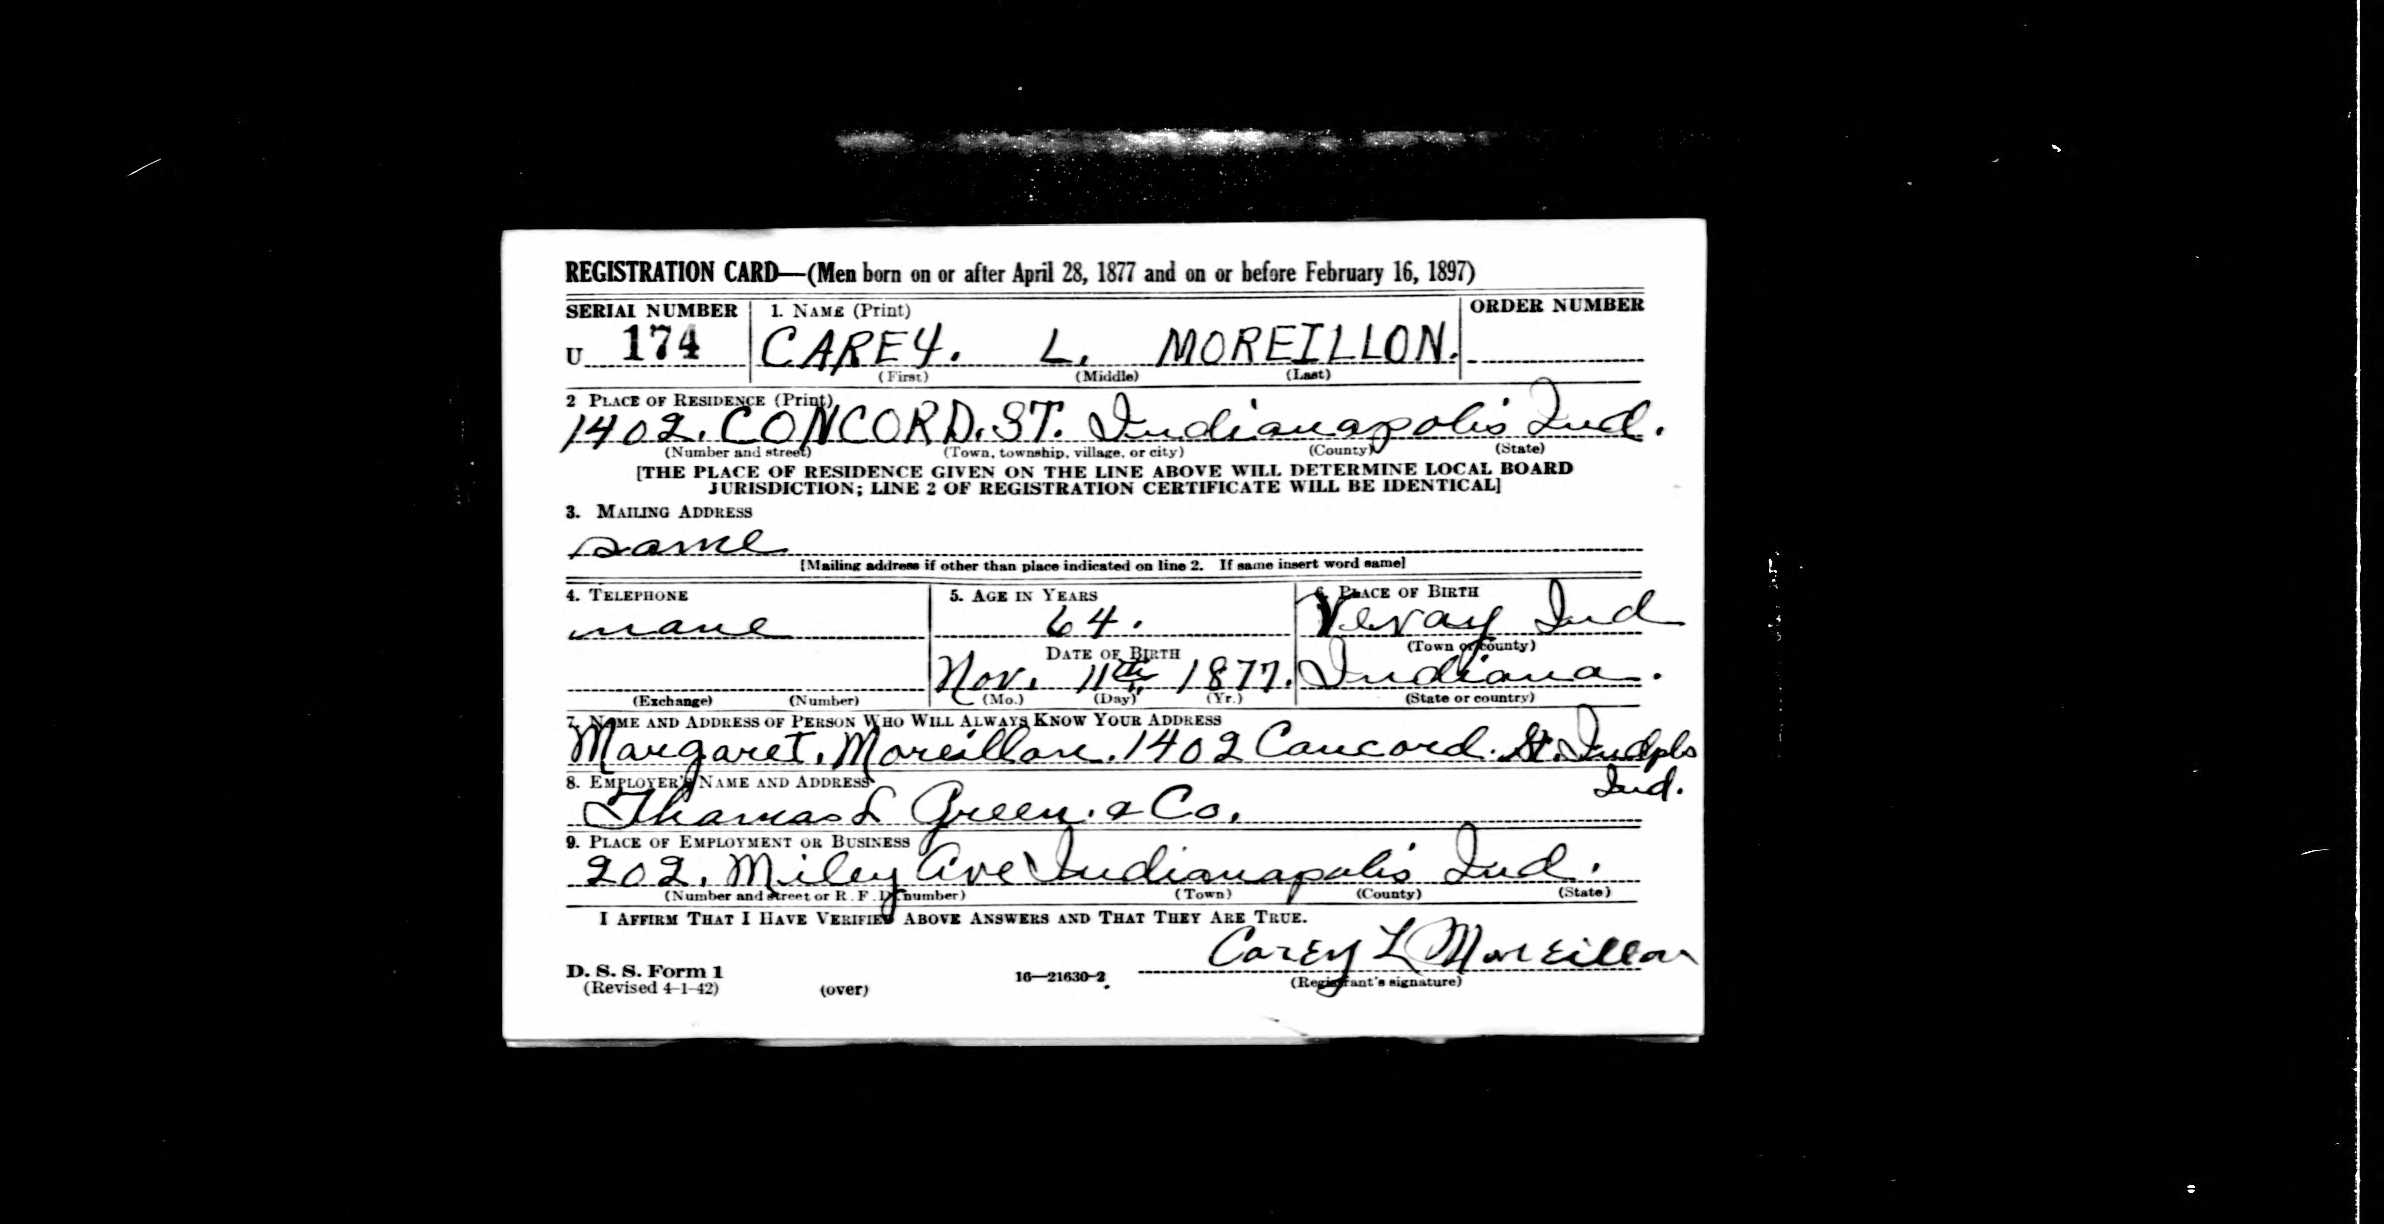 REGISTRATION CARD—(Men born on or after April 28, 1877 and on or before February 16, 1897)
SERIAL NUMBER 1. NAME (Print) ORDER NUMBER
U 174 CAREY. L. MOREILLON.
(First) (Middle) (Last)
2 PLACE OF RESIDENCE (Print)
1402. CONCORD. ST. Indianapolis Ind.
(Number and street) (Town, township, village, or city) (County) (State)
[THE PLACE OF RESIDENCE GIVEN ON THE LINE ABOVE WILL DETERMINE LOCAL BOARD
JURISDICTION; LINE 2 OF REGISTRATION CERTIFICATE WILL BE IDENTICAL]
3. MAILING ADDRESS
same
[Mailing address if other than place indicated on line 2. If same insert word same]
4. TELEPHONE 5. AGE IN YEARS 6. PLACE OF BIRTH
none 64. Vevay Ind
DATE OF BIRTH (Town or county)
Nov. 11th 1877. Indiana.
(Exchange) (Number) (Mo.) (Day) (Yr.) (State or country)
7. NAME AND ADDRESS OF PERSON WHO WILL ALWAYS KNOW YOUR ADDRESS
Margaret. Moreillon. 1402 Concord. St. Indpls
Ind.
8. EMPLOYER'S NAME AND ADDRESS
Thomas L Green. & Co.
9. PLACE OF EMPLOYMENT OR BUSINESS
202. Miley Ave Indianapolis Ind.
(Number and street or R. F. D. number) (Town) (County) (State)
I AFFIRM THAT I HAVE VERIFIED ABOVE ANSWERS AND THAT THEY ARE TRUE.
Carey L Moreillon
D. S. S. Form 1
(Revised 4-1-42) (over) 16—21630-2 (Registrant's signature)